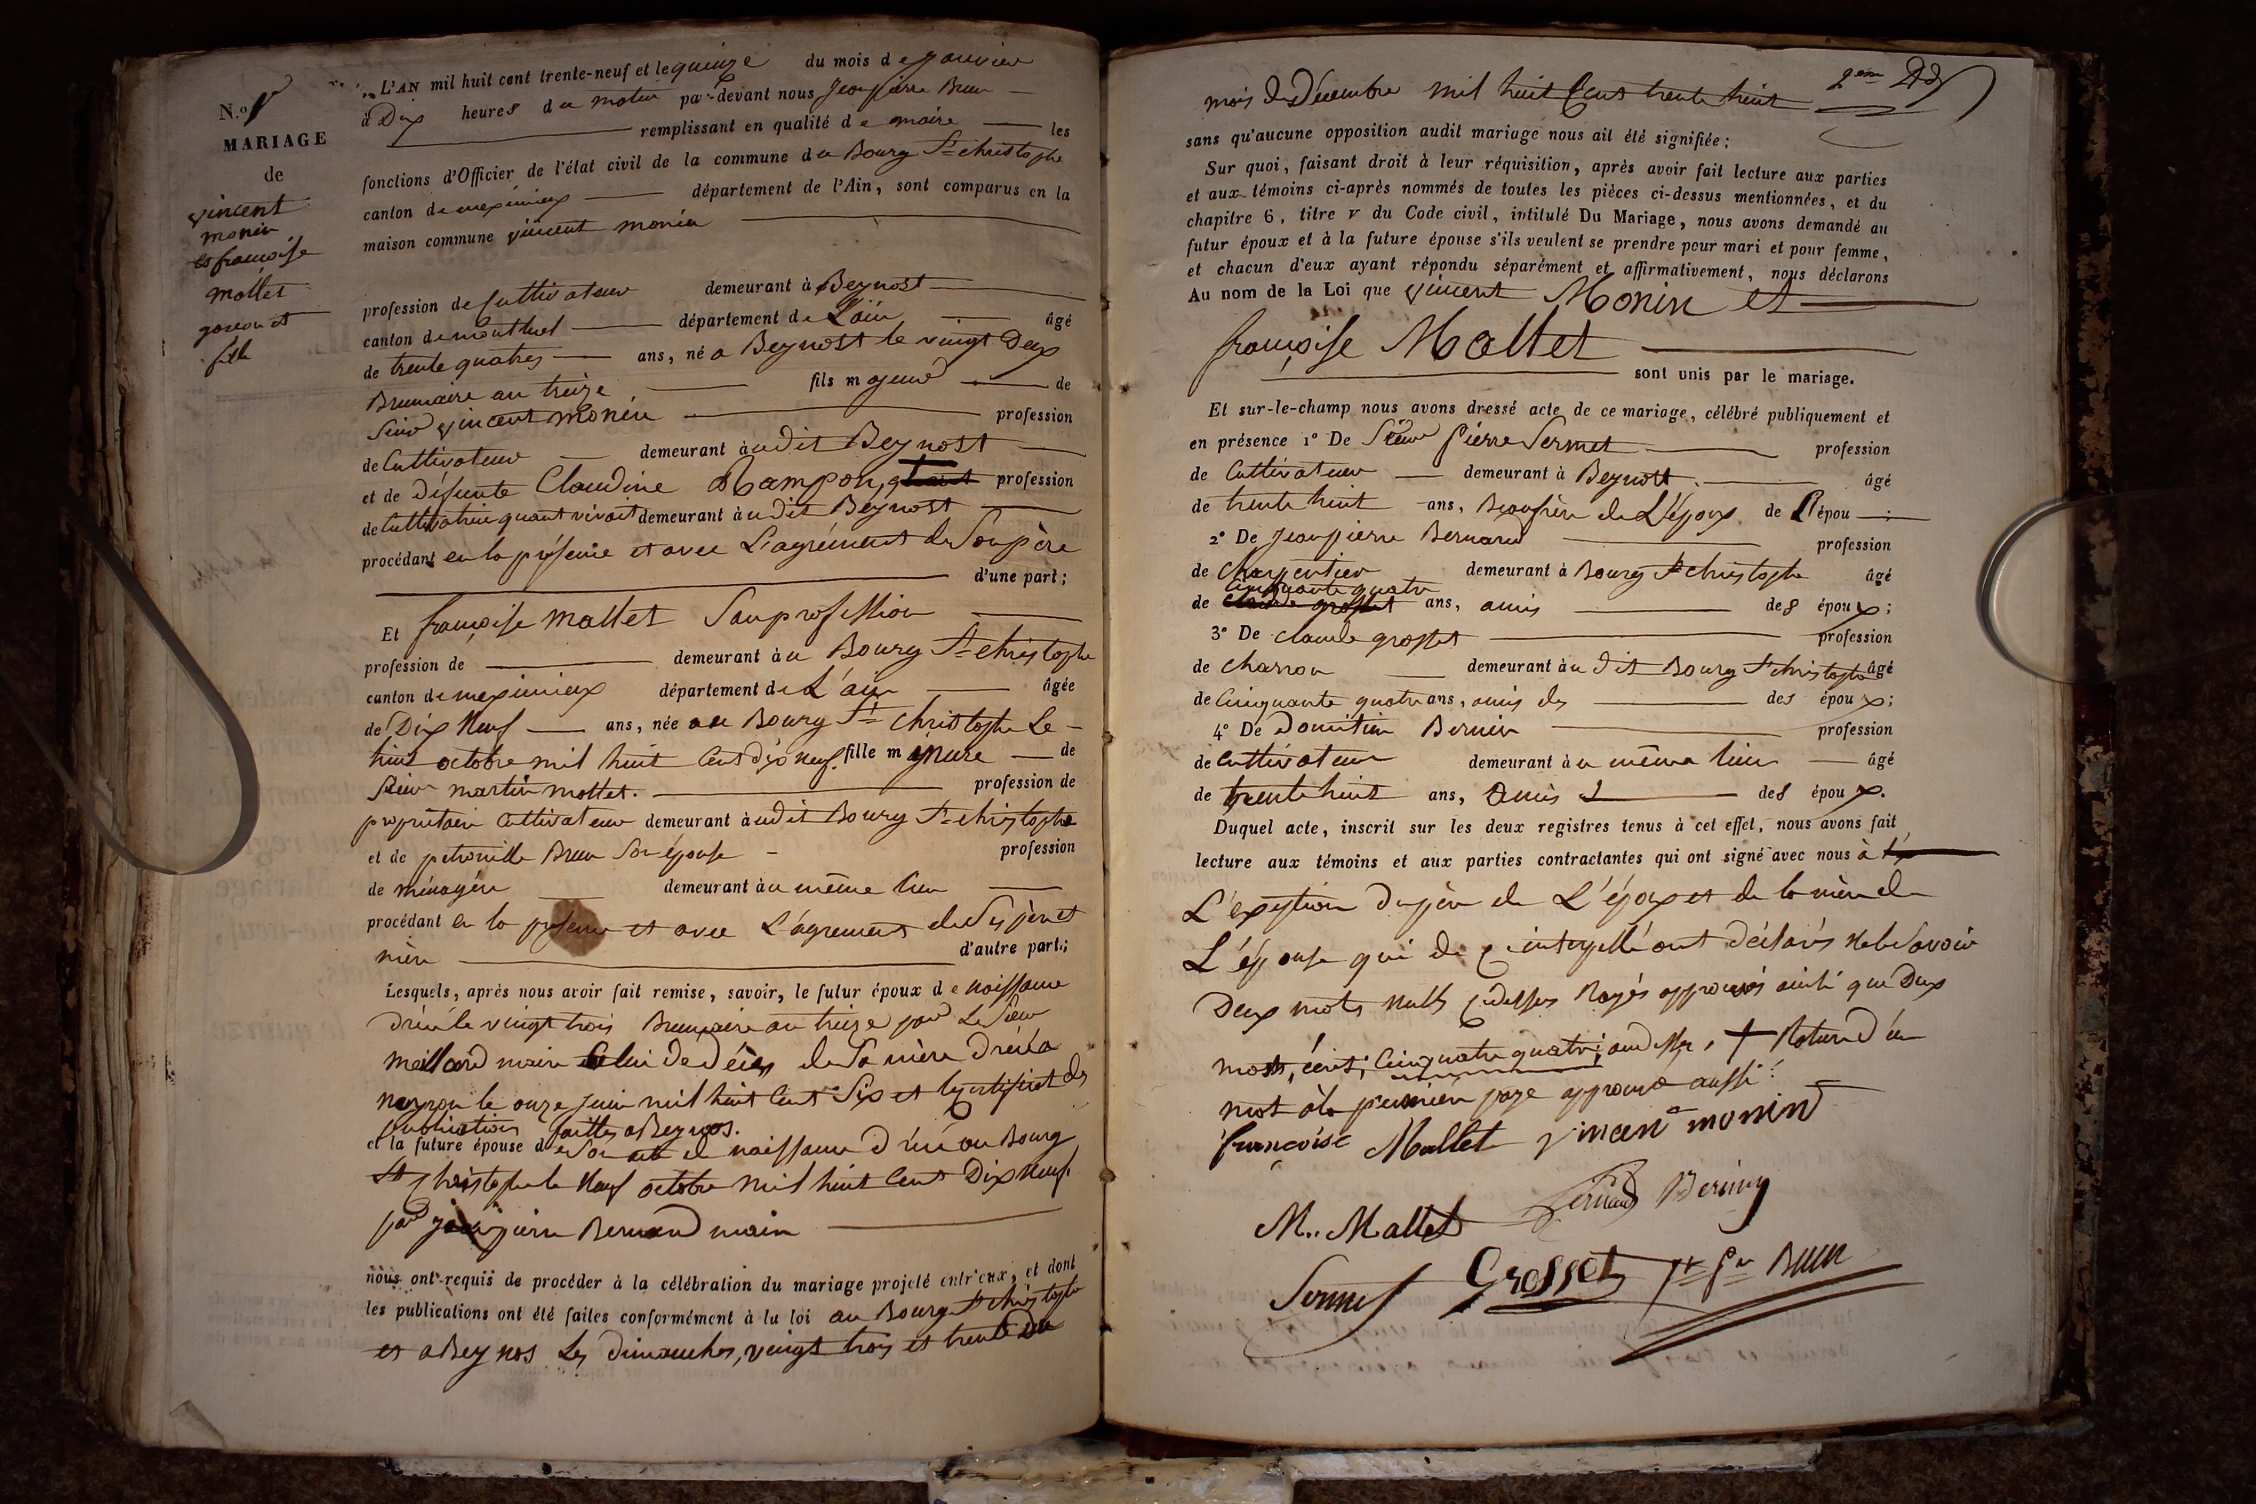 N.º 1er
MARIAGE
de
vincent
monin
et françoise
mallet
garcon et
fille
L'AN mil huit cent trente-neuf et le quinze du mois de janvier
à Dix heures du matin par-devant nous jean pierre Brun
remplissant en qualité de maire les
fonctions d'Officier de l'état civil de la commune du Bourg St christophe
canton de meximieux département de l'Ain, sont comparus en la
maison commune vincent monin
profession de Cultivateur demeurant à Beynost
canton de montluel département de L'ain âgé
de trente quatres ans, né a Beynost le vingt Deux
Brumaire an treize fils majeur de
sieur vincent monin profession
de Cultivateur demeurant àudit Beynost
et de défunte Claudine Rampon profession
de Cultivatrice quant vivait demeurant àudit Beynost
procédant en la présence et avec L'agrément de Son père
d'une part;
Et françoise mallet Sans profession
profession de demeurant àu Bourg St christophe
canton de meximieux département de L'ain âgée
de Dix Neuf ans, née au Bourg St christophe Le
huit octobre mil huit Cent dix neuf fille mineure de
Sieur martin mallet. profession de
propriétaire Cultivateur demeurant àudit Bourg St christophe
et de petronille Brun Son épouse profession
de ménagère demeurant àu même lieu
procédant en la présence et avec L'agrement de Ses père et
mère d'autre part;
Lesquels, après nous avoir fait remise, savoir, le futur époux de naissance
Dréué le vingt trois Brumaire an treize par Le Sieur
maillard maire Celui de Décès de Sa mère Dréué a
neyron le onze juin mil huit Cent Six et le certificat des
publications faittes a Beynos.
et la future épouse de Son acte de naissance dréué au Bourg
St christophe le Neuf octobre mil huit Cent Dix Neuf
par jean pierre Bernard maire
nous ont requis de procéder à la célébration du mariage projeté entr'eux, et dont
les publications ont été faites conformément à la loi au Bourg St christophe
et a Beynos Les Dimanches, vingt trois et trente Du
mois de Décembre mil huit Cent trente huit
sans qu'aucune opposition audit mariage nous ait été signifiée;
Sur quoi, faisant droit à leur réquisition, après avoir fait lecture aux parties
et aux témoins ci-après nommés de toutes les pièces ci-dessus mentionnées, et du
chapitre 6, titre v du Code civil, intitulé Du Mariage, nous avons demandé au
futur époux et à la future épouse s'ils veulent se prendre pour mari et pour femme,
et chacun d'eux ayant répondu séparément et affirmativement, nous déclarons
Au nom de la Loi que vincent Monin et
françoise Mallet
sont unis par le mariage.
Et sur-le-champ nous avons dressé acte de ce mariage, célébré publiquement et
en présence 1º De Sieur pierre Sermet profession
de Cultivateur demeurant à Beynost âgé
de trente huit ans, Beaufrère de L'époux de L'épou
2º De jean pierre Bernard profession
de charpentier demeurant à Bourg St christophe âgé
Cinquante quatre
de claude grosset ans, amis des époux;
3º De claude grosset profession
de charron demeurant àudit Bourg St christophe âgé
de Cinquante quatre ans, amis des des époux;
4º De Domitien Bernin profession
de Cultivateur demeurant àu même lieu âgé
de trente huit ans, Amis des époux.
Duquel acte, inscrit sur les deux registres tenus à cet effet, nous avons fait
lecture aux témoins et aux parties contractantes qui ont signé avec nous à
L'exeption du père de L'époux et de la mère de
L'épouse qui de ce interpellé ont déclarés Ne le Savoir
Deux mots nulls cidessus Rayés approuvés ainsi que Deux
mots, écrit, Cinquante quatre, audessus, + Rature d'un
mot à la premiere page approuvé aussi.
françoise Mallet vincent monin
M.. Mallet Bernard Bernin
Sermet Grosset jn pre Brun